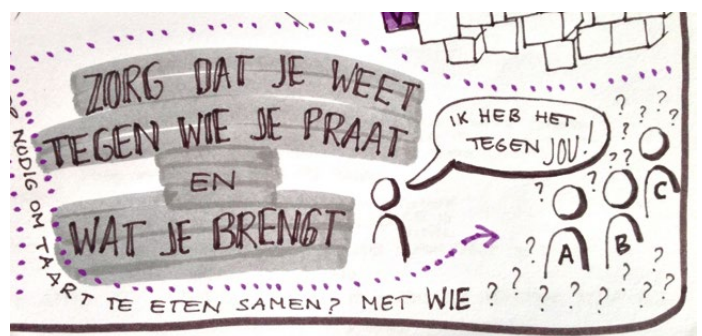 ZORG DAT JE WEET
TEGEN WIE JE PRAAT
EN
WAT JE BRENGT
IK HEB HET
TEGEN JOU!
? ? ? ?
? ?
? ?
A B C
NODIG OM TAART TE ETEN SAMEN? MET WIE ? ? ? ? ? ? ?